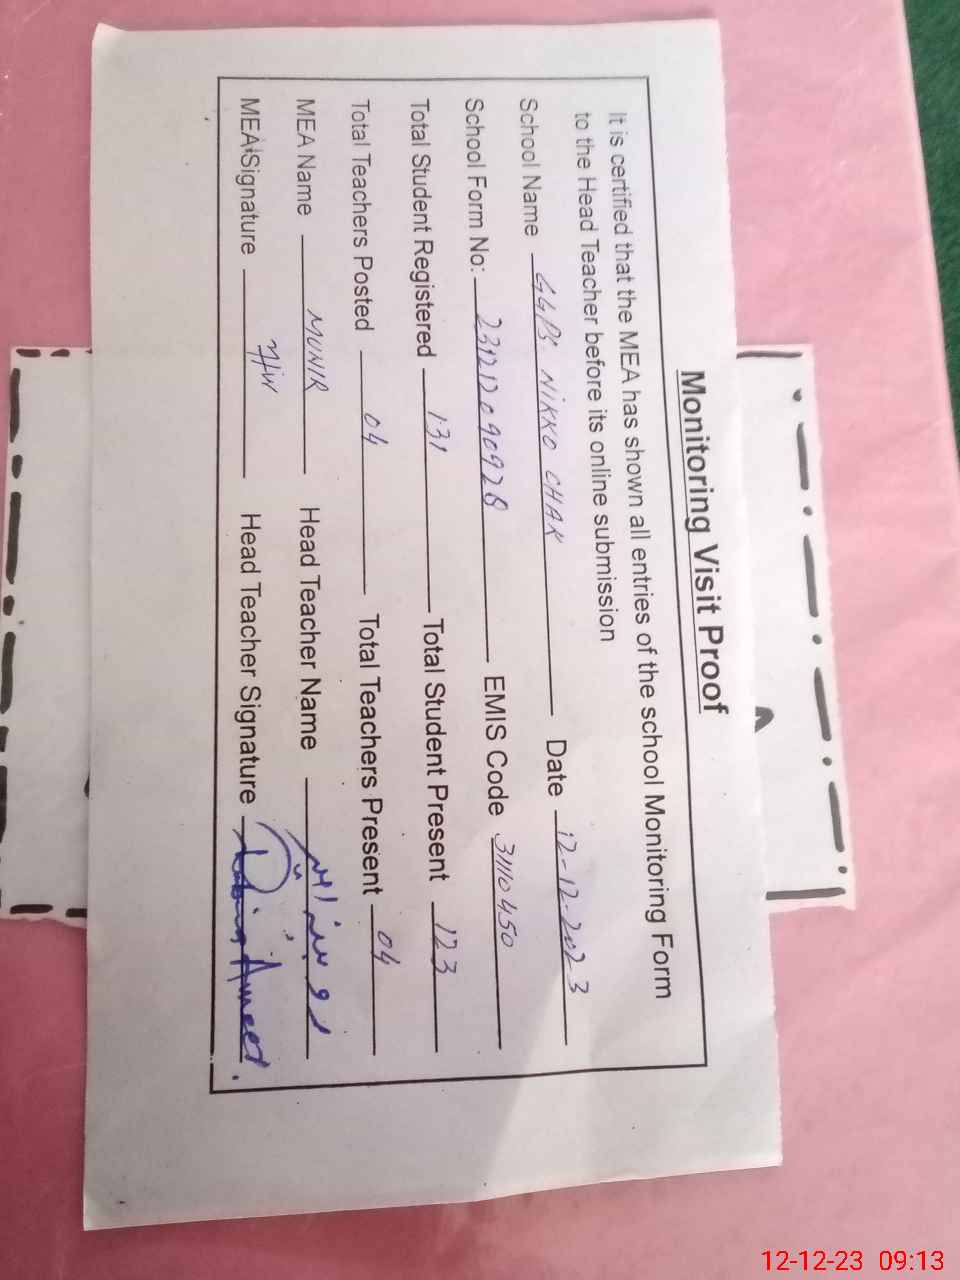 Monitoring Visit Proof
It is certified that the MEA has shown all entries of the school Monitoring Form
to the Head Teacher before its online submission
School Name GGPS. NIKKO CHAK Date 12-12-2023
School Form No: 231212090928 EMIS Code 31110450
Total Student Registered 131 Total Student Present 123
Total Teachers Posted 04 Total Teachers Present 04
MEA Name MUNIR Head Teacher Name روبینہ
MEA Signature Head Teacher Signature
12-12-23 09:13